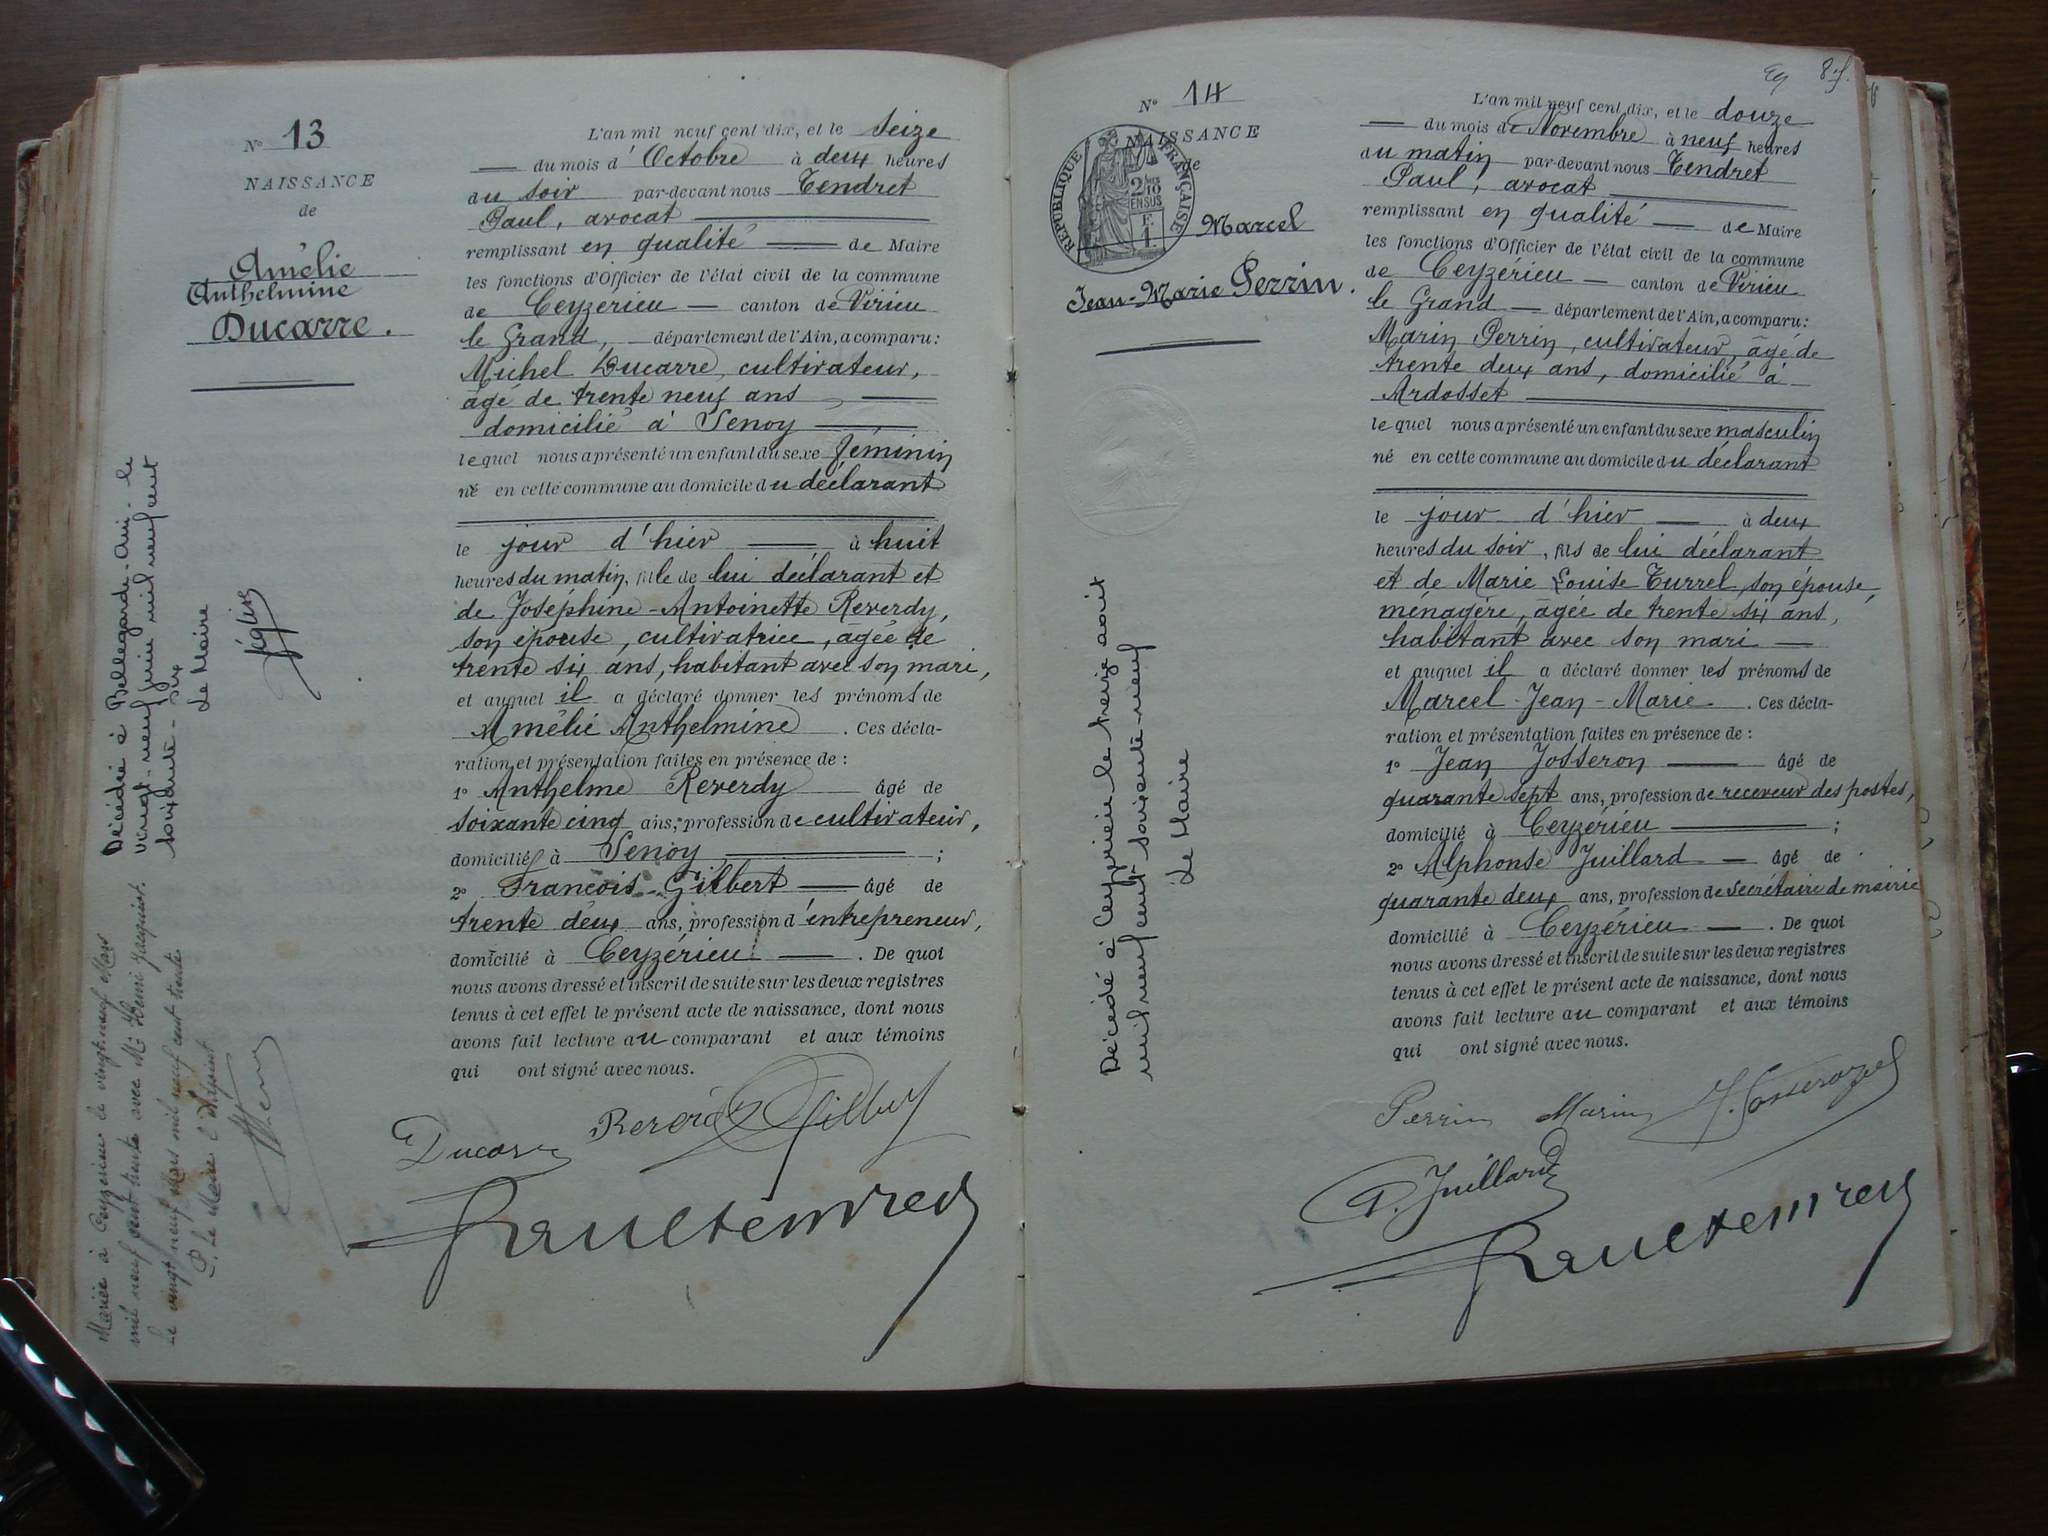 N° 13
NAISSANCE
de
Amélie
Anthelmine
Ducarre.
L'an mil neuf cent dix, et le seize
du mois d'Octobre à deux heures
du soir par-devant nous Tendret
Paul, avocat
remplissant en qualité de Maire
les fonctions d'Officier de l'état civil de la commune
de Ceyzerieu canton de Virieu
le Grand, département de l'Ain, a comparu:
Michel Ducarre, cultivateur,
âgé de trente neuf ans,
domicilié à Senoy
lequel nous a présenté un enfant du sexe féminin
né en cette commune au domicile du déclarant
le jour d'hier à huit
heures du matin, fille de lui déclarant et
de Joséphine-Antoinette Reverdy,
son épouse, cultivatrice, âgée de
trente six ans, habitant avec son mari,
et auquel il a déclaré donner les prénoms de
Amélie Anthelmine. Ces décla-
ration et présentation faites en présence de :
1° Anthelme Reverdy âgé de
soixante cinq ans, profession de cultivateur,
domicilié à Senoy ;
2° François Gilbert âgé de
trente deux ans, profession d'entrepreneur,
domicilié à Ceyzérieu. De quoi
nous avons dressé et inscrit de suite sur les deux registres
tenus à cet effet le présent acte de naissance, dont nous
avons fait lecture au comparant et aux témoins
qui ont signé avec nous.
Ducarre Reverdy Gilbert
Paul Tendret
Décédée à Bellegarde-Ain - le
vingt-neuf juin mil neuf cent
soixante-six
Le Maire
Mariée à Ceyzerieu le vingt-neuf Mars
mil neuf cent trente avec Mr Henri Jacquier.
Le vingt neuf Mars mil neuf cent trente
P. Le Maire l'Adjoint
N° 14
NAISSANCE
de
RÉPUBLIQUE FRANÇAISE
2/10
EN SUS
F.
1.
Marcel
Jean-Marie Perrin.
87.
L'an mil neuf cent dix, et le douze
du mois de Novembre à neuf heures
du matin par-devant nous Tendret
Paul, avocat
remplissant en qualité de Maire
les fonctions d'Officier de l'état civil de la commune
de Ceyzérieu canton de Virieu
le Grand département de l'Ain, a comparu:
Marin Perrin, cultivateur, âgé de
trente deux ans, domicilié à
Ardosset
lequel nous a présenté un enfant du sexe masculin
né en cette commune au domicile du déclarant
le jour d'hier à deux
heures du soir, fils de lui déclarant
et de Marie Louise Turrel, son épouse,
ménagère, âgée de trente six ans,
habitant avec son mari
et auquel il a déclaré donner les prénoms de
Marcel-Jean-Marie. Ces décla-
ration et présentation faites en présence de :
1° Jean Josseron âgé de
quarante sept ans, profession de receveur des postes,
domicilié à Ceyzérieu ;
2° Alphonse Juillard âgé de
quarante deux ans, profession de secrétaire de mairie
domicilié à Ceyzérieu. De quoi
nous avons dressé et inscrit de suite sur les deux registres
tenus à cet effet le présent acte de naissance, dont nous
avons fait lecture au comparant et aux témoins
qui ont signé avec nous.
Perrin Marin J. Josseron
A. Juillard
Paul Tendret
Décédé à Ceyzérieu le treize août
mil neuf cent soixante-neuf
Le Maire